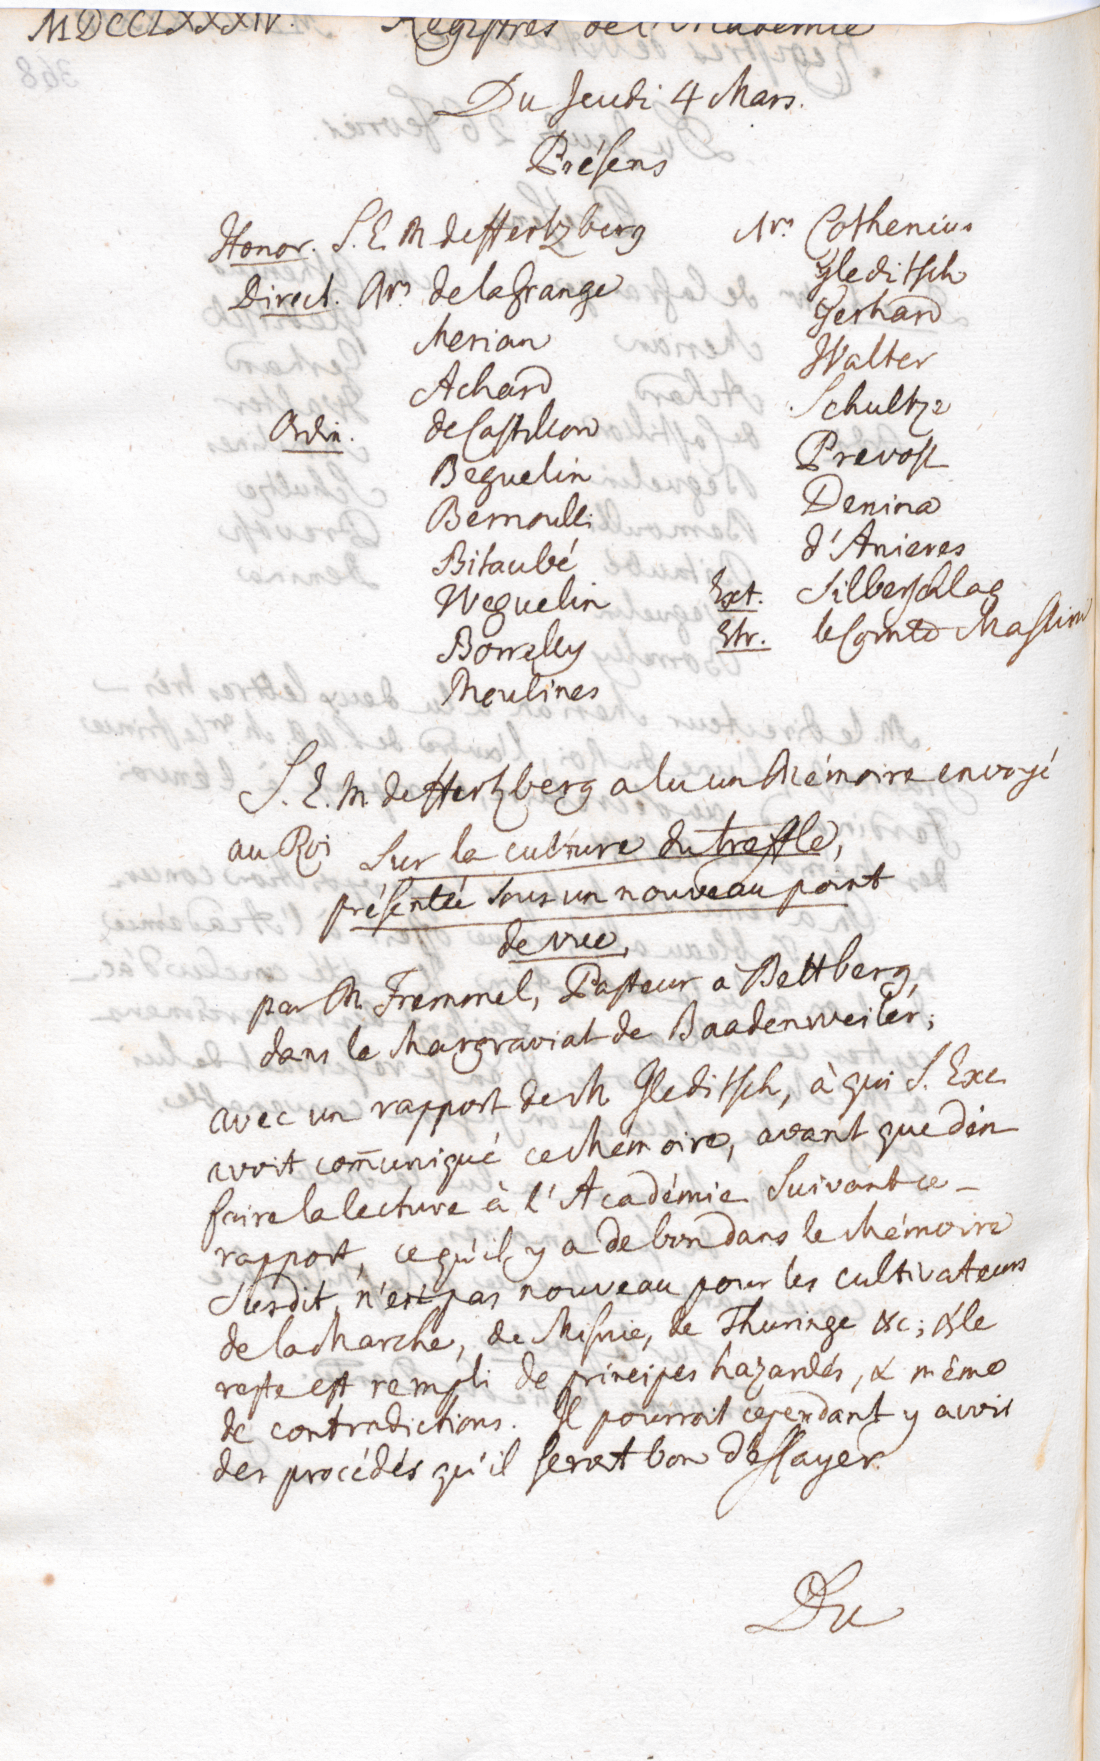 MDCCLXXXIV. Registres de l'Academie
Du Jeudi 4 Mars.
Présens
Honor. S. E. M de Hertzberg
Direct. Mrs de la Grange
Merian
Achard
Ordin. de Castillon
Beguelin
Bernoulli
Bitaubé
Weguelin
Borrelly
Moulines
Mrs Cothenius
Gleditsch
Gerhard
Walter
Schultze
Prevost
Denina
d'Anieres
Ext. Silberschlag
Etr. le Comte Maslim
S. E. M de Hertzberg a lu un Mémoire envoyé
au Roi Sur la culture du treffle,
présentée sous un nouveau point
de vue,
par M. Fremmel, Pasteur à Bettberg,
dans le Margraviat de Baadenweiler;
avec un rapport de M Gleditsch, à qui S. Exc.
avoit com̄uniqué ce Mémoire, avant que d'en
faire la lecture à l'Académie. Suivant ce
rapport, ce qu'il y a de bon dans le Mémoire
susdit, n'est pas nouveau pour les cultivateurs
de la Marche, de Misnie, de Thuringe &c; & le
reste est rempli de principes hazardés, & même
de contradictions. Il pourroit cependant y avoir
des procédés qu'il seroit bon d'essayer.
Du